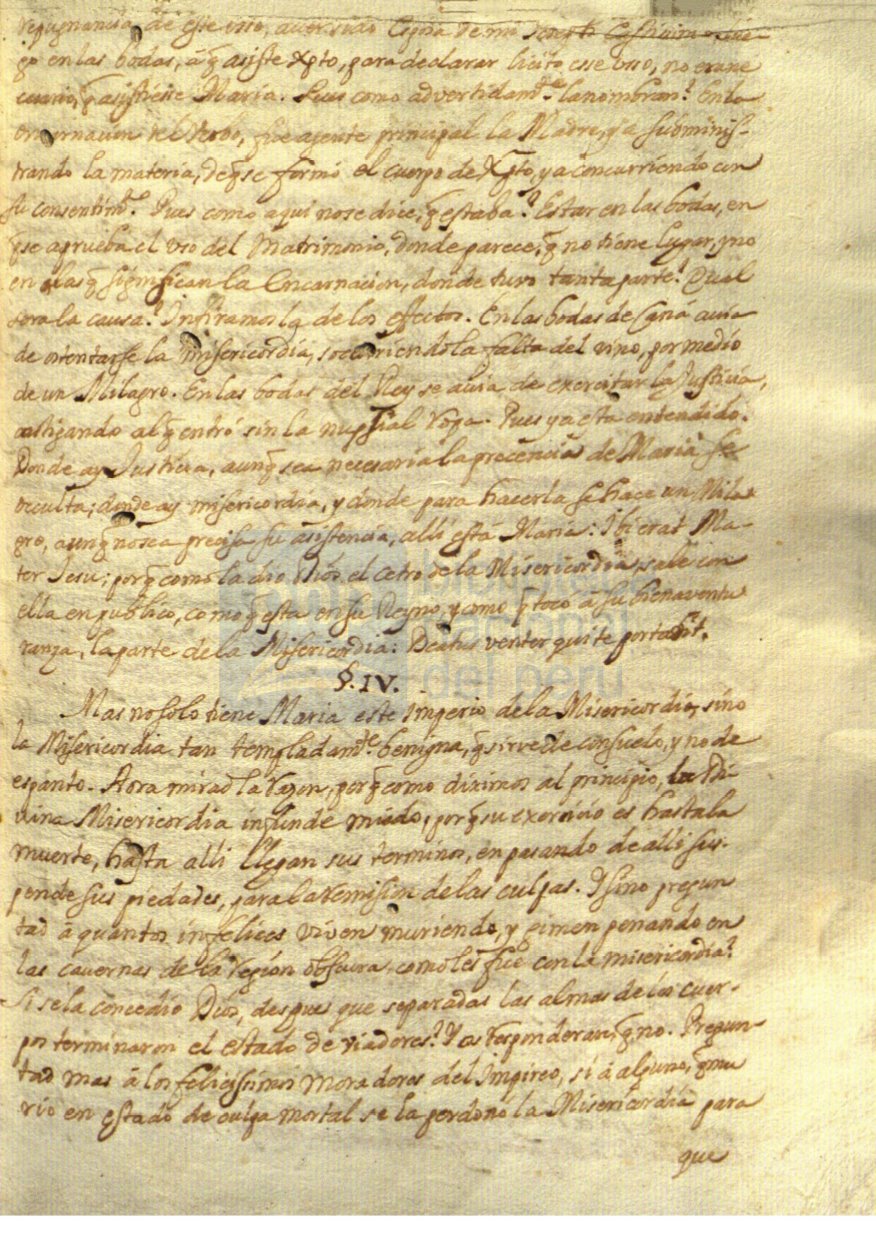 repugnancia de este uso, aver sido Esposa de mi Joseph Castissimo. lue-
go en las bodas, á q̃ asiste Xpto, para declarar licito esse uso, no era ne
cesario, q̃ asistiese Maria. Pues como advertidamᵗᵉ la nombran? En la
encarnacion del Verbo, fue agente principal la Madre, ya subminis-
trando la materia, de q̃ se formó el cuerpo de Xpto, ya concurriendo con
su consentimᵗᵒ. Pues como aqui no se dice, q̃ estaba? Estar en las bodas, en
q̃ se aprueba el uso del Matrimonio, donde parece, q̃ no tiene lugar, y no
en las q̃ significan la Encarnacion, donde tuvo tanta parte? Qual
sera la causa? Infiramosla de los effectos. En las bodas de Caná avia
de ostentarse la misericordia, socorriendo la falta del vino, por medio
de un Milagro. En las bodas del Rey se avia de exercitar la Justicia,
castigando al q̃ entró sin la nupcial ropa. Pues ya esta entendido.
Donde ay Justicia, aunq̃ sea necesaria la precencia de Maria se
occulta; donde ay misericordia, y donde para hacerla se hace un Mila-
gro, aunq̃ no sea precisa su asistencia, alli está Maria: Ibi erat Ma-
ter Jesu; porq̃ como la dio Dios el cetro de la Misericordia, sale con
ella en publico, como q̃ esta en su Reyno, y como q̃ toco á su bienaventu
ranza, la parte de la Misericordia: Beatus venter qui te portavit.
§. IV.
Mas no solo tiene Maria este Imperio de la Misericordia, sino
la Misericordia tan templadamᵗᵉ benigna, q̃ sirve de consuelo, y no de
espanto. Aora mirad la razon, porq̃ como diximos al principio, la Di
vina Misericordia infunde miedo, porq̃ su exercicio es hasta la
muerte, hasta alli llegan sus terminos, en pasando de alli sus-
pende sus piedades, para la remision de las culpas. Y sino pregun
tad á quantos infelices viven muriendo, y gimen penando en
las cavernas de la region obscura, como les fue con la misericordia?
Si se la concedio Dios, despues que separadas las almas de los cuer-
pos terminaron el estado de viadores? Y os responderan, q̃ no. Pregun-
tad mas á los felicissimos moradores del Impireo, si á alguno, q̃ mu
rio en estado de culpa mortal se la perdonó la Misericordia para
que
biblioteca
nacional
del perú